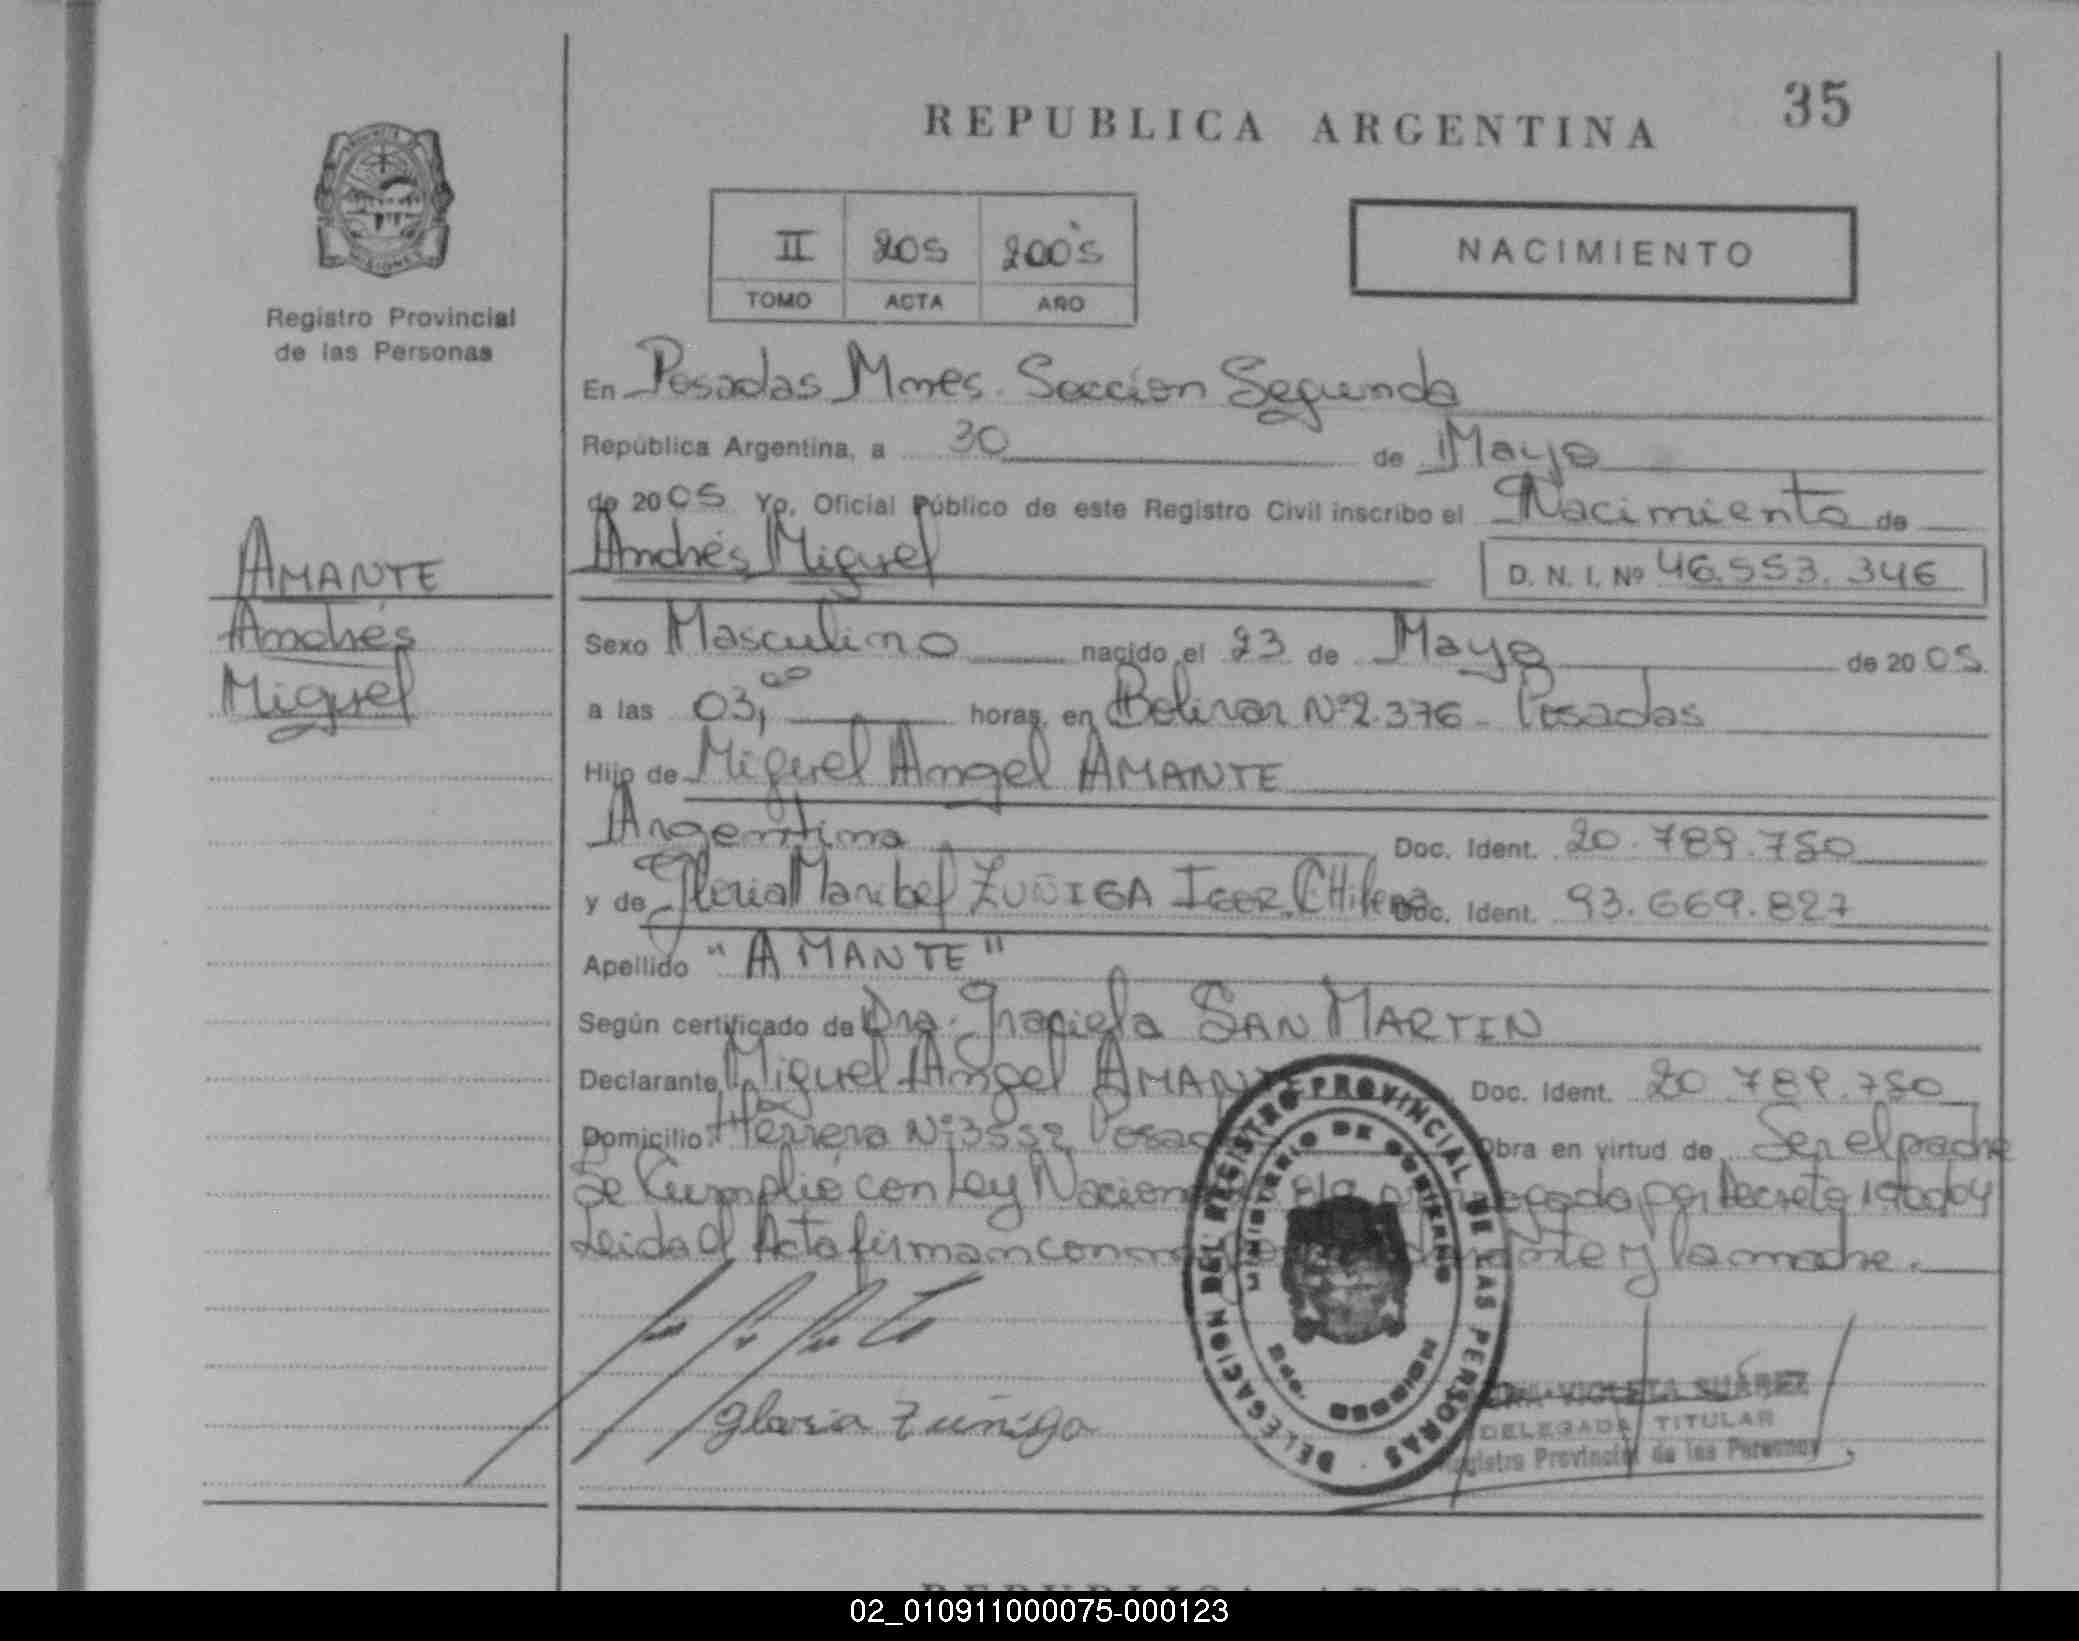 35
REPUBLICA ARGENTINA
Registro Provincial
de las Personas
II 205 2005
TOMO ACTA AÑO
NACIMIENTO
En Posadas Mnes. Sección Segunda
República Argentina, a 30 de Mayo
de 2005 Yo, Oficial Público de este Registro Civil inscribo el Nacimiento de
Andrés Miguel
D. N. I. Nº 46.553.346
AMANTE
Andrés
Miguel
Sexo Masculino nacido el 23 de Mayo de 2005
a las 03,00 horas, en Bolivar Nº 2.376 - Posadas
Hijo de Miguel Angel AMANTE
Argentino Doc. Ident. 20.789.750
y de Gloria Maribel ZUÑIGA IGOR. CHilena Doc. Ident. 93.669.827
Apellido "AMANTE"
Según certificado de Dra. Graciela SAN MARTIN
Declarante Miguel Angel AMANTE Doc. Ident. 20.789.750
Domicilio Herrera Nº 3552 Obra en virtud de Ser el padre
Se Cumplió con Ley por Decreto
Leida el Acta firman la madre.
Gloria Zuñiga
DELEGACION DEL REGISTRO PROVINCIAL DE LAS PERSONAS
MINISTERIO DE GOBIERNO
VIOLETA SUÁREZ
DELEGADA TITULAR
Registro Provincial de las Personas
REPUBLICA ARGENTINA
02_010911000075-000123